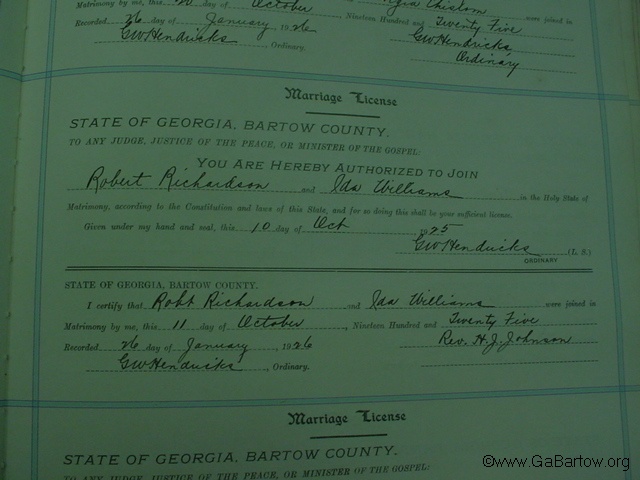 Matrimony by me, this day of October Chislom were joined in
Nineteen Hundred and Twenty Five
Recorded 26 day of January 1926 GW Hendricks
GW Hendricks, Ordinary. Ordinary
Marriage License
STATE OF GEORGIA, BARTOW COUNTY.
TO ANY JUDGE, JUSTICE OF THE PEACE, OR MINISTER OF THE GOSPEL:
YOU ARE HEREBY AUTHORIZED TO JOIN
Robert Richardson and Ida Williams in the Holy State of
Matrimony, according to the Constitution and laws of this State, and for so doing this shall be your sufficient license.
Given under my hand and seal, this 10 day of Oct 1925
GW Hendricks (L. S.)
ORDINARY
STATE OF GEORGIA, BARTOW COUNTY.
I certify that Robt Richardson and Ida Williams were joined in
Matrimony by me, this 11 day of October, Nineteen Hundred and Twenty Five
Recorded 26 day of January, 1926 Rev. H. J. Johnson
GW Hendricks, Ordinary.
Marriage License
STATE OF GEORGIA, BARTOW COUNTY.
TO ANY JUDGE, JUSTICE OF THE PEACE, OR MINISTER OF THE GOSPEL:
©www.GaBartow.org